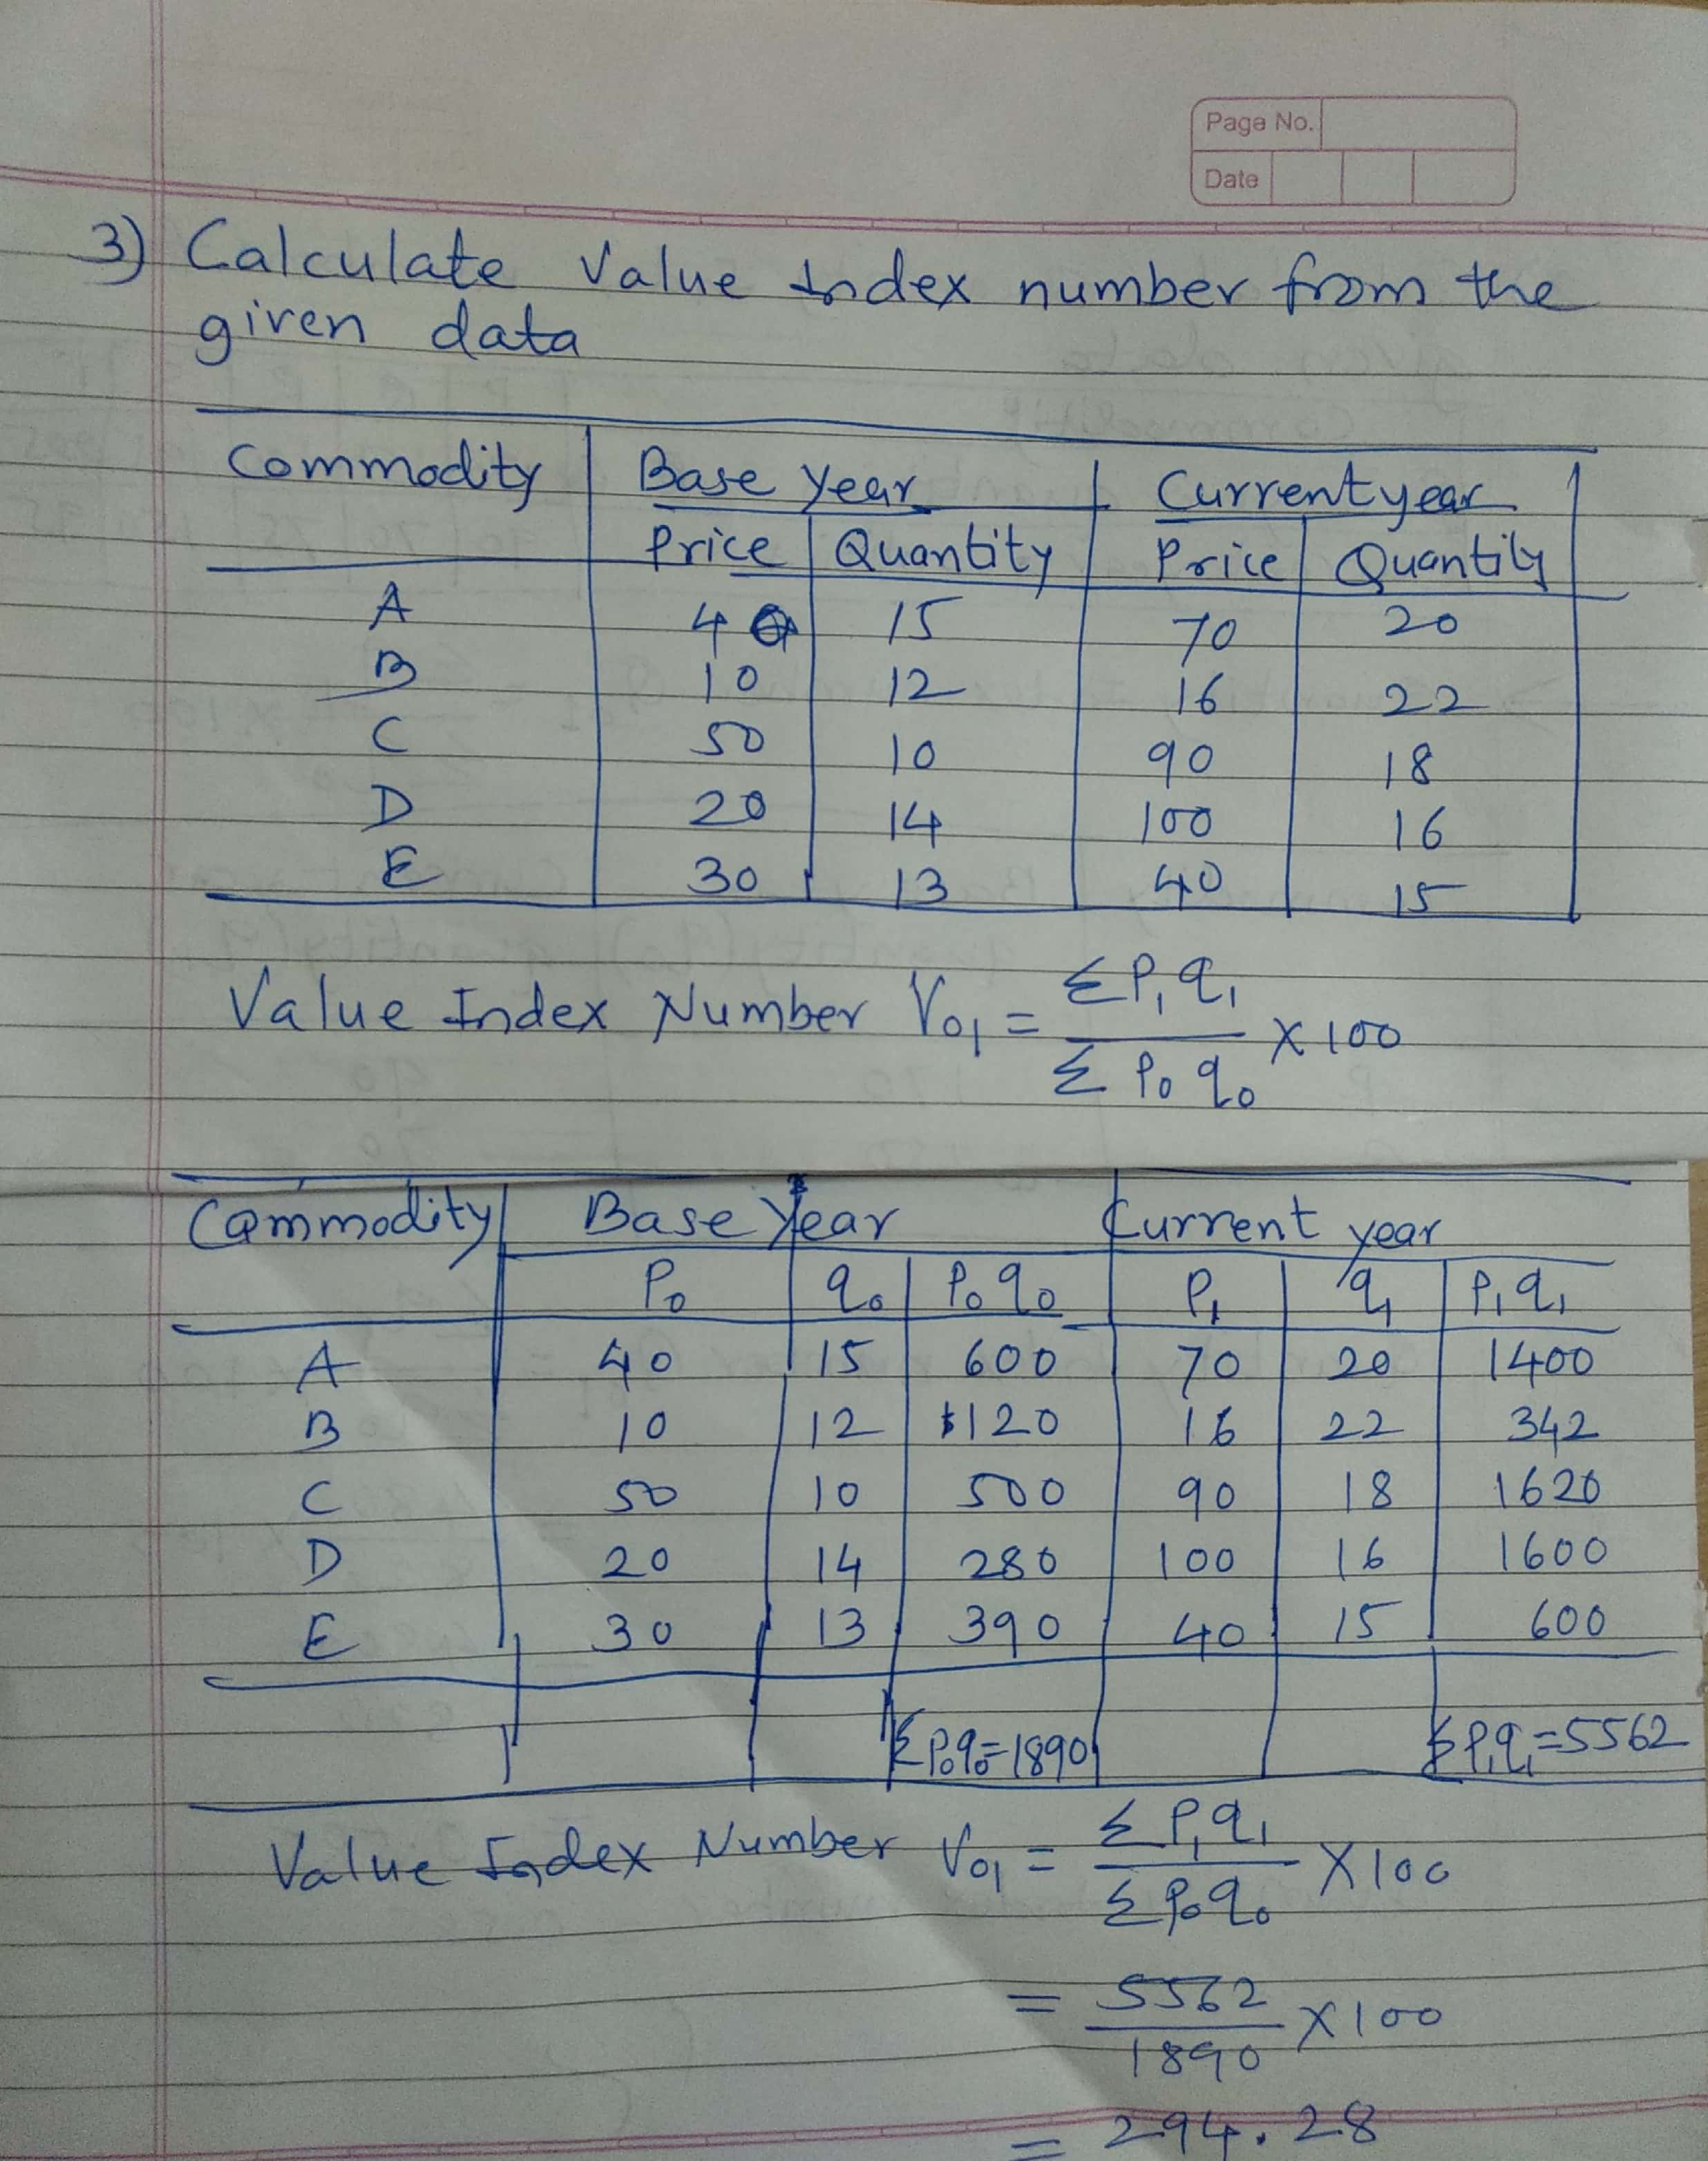 Page No.
Date
3) Calculate Value Index number from the
given data
Commodity Base Year Current year
Price Quantity Price Quantity
A 40 15 70 20
B 10 12 16 22
C 50 10 90 18
D 20 14 100 16
E 30 13 40 15
Value Index Number V₀₁ = Σ P₁ q₁ / Σ P₀ q₀ × 100
Commodity Base Year Current year
P₀ q₀ P₀ q₀ P₁ q₁ P₁ q₁
A 40 15 600 70 20 1400
B 10 12 120 16 22 342
C 50 10 500 90 18 1620
D 20 14 280 100 16 1600
E 30 13 390 40 15 600
Σ P₀q₀ = 1890 Σ P₁q₁ = 5562
Value Index Number V₀₁ = Σ P₁ q₁ / Σ P₀ q₀ × 100
= 5562 / 1890 × 100
= 294.28